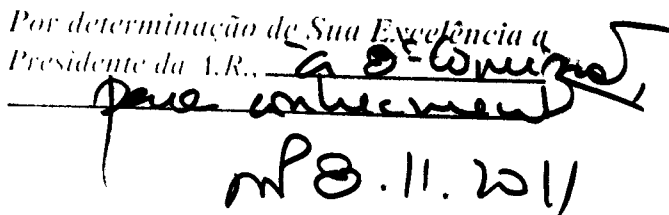 Por determinação de Sua Excelência a
Presidente da A.R., à 8ª Comissão,
para conhecimento
8.11.2011